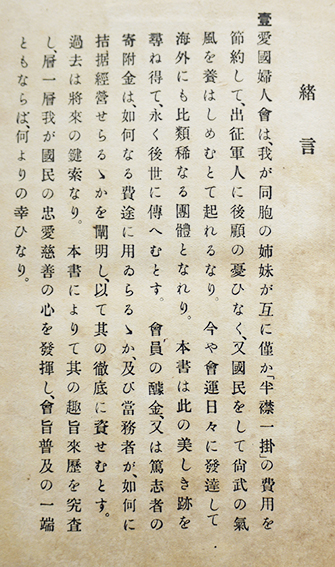 緒言
壹愛國婦人會は、我が同胞の姉妹が互に僅か「半襟一掛」の費用を
節約して、出征軍人に後顧の憂ひなく、又國民をして尙武の氣
風を養はしめむとて起れるなり。　今や會運日々に發達して
海外にも比類稀なる團體となれり。　本書は此の美しき跡を
尋ね得て、永く後世に傳へむとす。　會員の醵金、又は篤志者の
寄附金は、如何なる費途に用ゐらるゝか、及び當務者が、如何に
拮据經營せらるゝかを闡明し、以て其の徹底に資せむとす。
過去は將來の鍵索なり。　本書によりて其の趣旨來歷を究査
し、層一層我が國民の忠愛慈善の心を發揮し、會旨普及の一端
ともならば、何よりの幸ひなり。